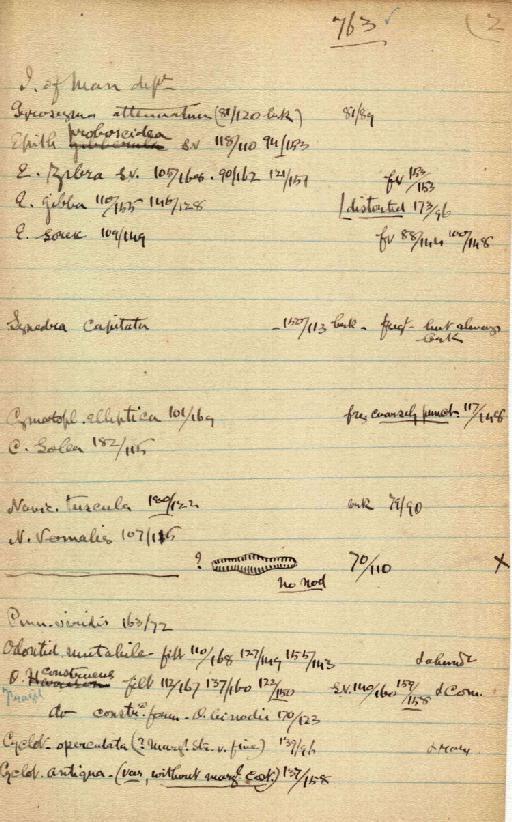 763 ✓ 2
I. of Man dept
Gyrosigma attenuatum (81/120 brk) 81/89
Epith proboscidea s.v 118/110 94/153
E. Zebra s.v. 105/168 . 90/162 121/151 fv 153/153
E. gibba 110/155 146/128 distorted 173/96
E. sorex 109/149 fv 88/144 100/148
Synedra capitata 150/113 brk - fragt - but always brk
Cymatopl. elliptica 101/169 frag coarsely punct. 117/148
C. Solea 182/115
Navic. tuscula 180/122 brk 79/90
N. Vomalis 107/115
? 70/110 X
no nod
Pinn. viridis 163/72
Odontid. mutabile - filt 110/168 127/149 155/143
O. construens filt 112/167 137/160 122/150 s.v. 140/160 159/158 & Com.
do constr. form - O. binodis 170/123
Cyclot. operculata (? margl. Str. v. fine) 139/96
Cyclot. antiqua - (var, without margl cost.) 137/158